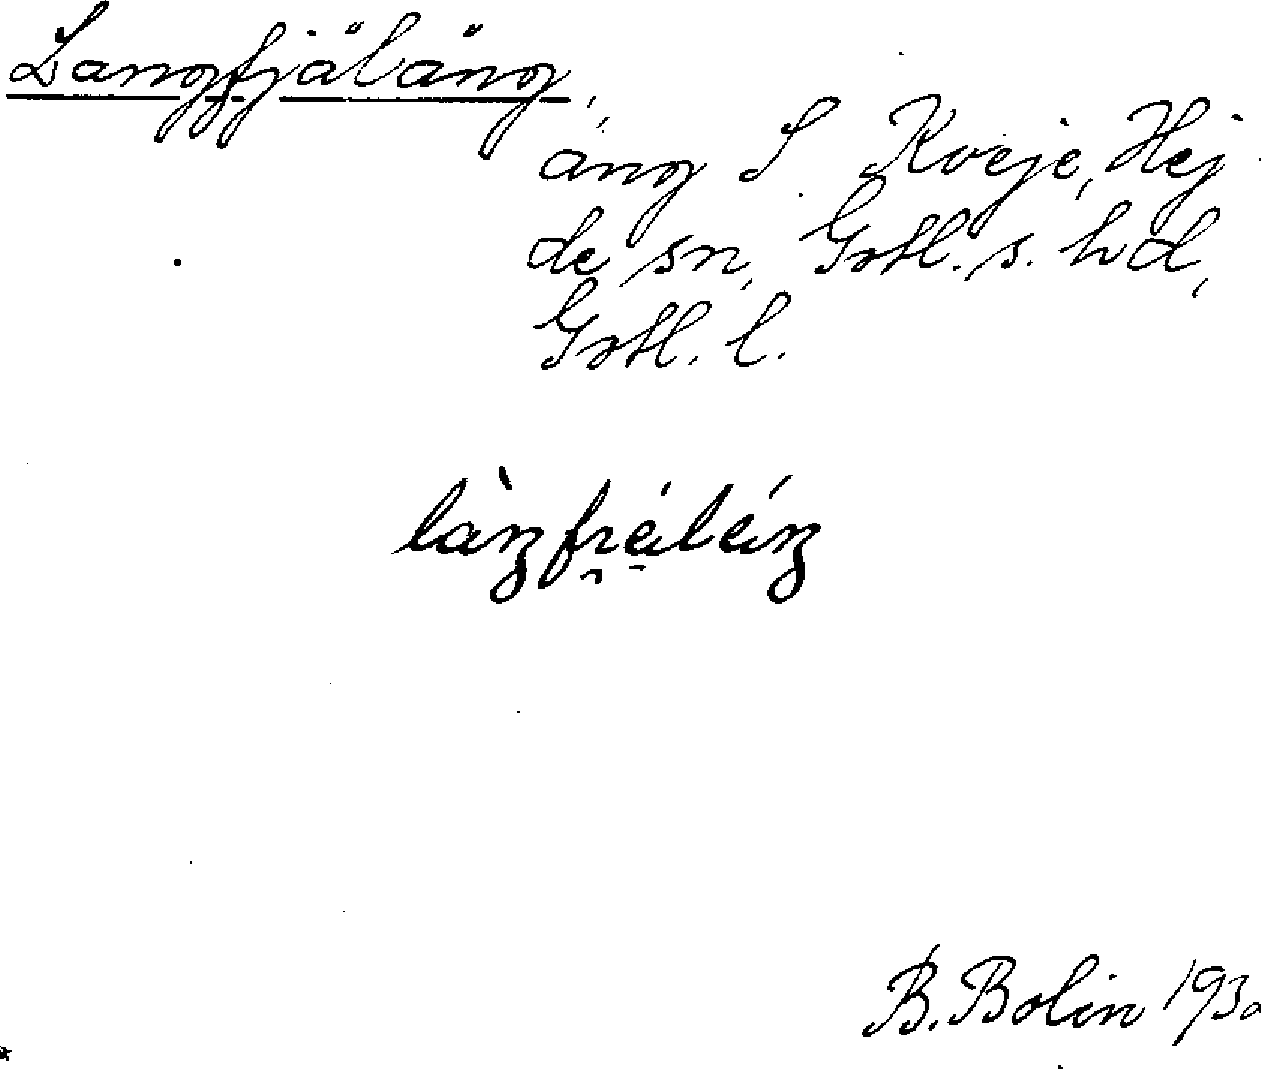 Langfjäläng,
äng S Kveje, Hej
de sn, Gotl. s. hd,
Gotl. l.
B. Bolin 1930